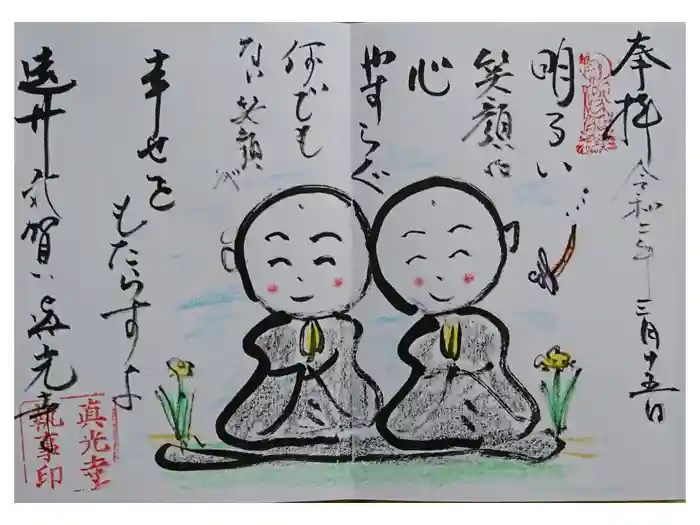 奉拝
令和二年三月十五日
明るい
笑顔は
心
やすらぐ
何でも
ない笑顔が
幸せを
もたらすよ
遠州 賀 真光寺
真光寺
執事印